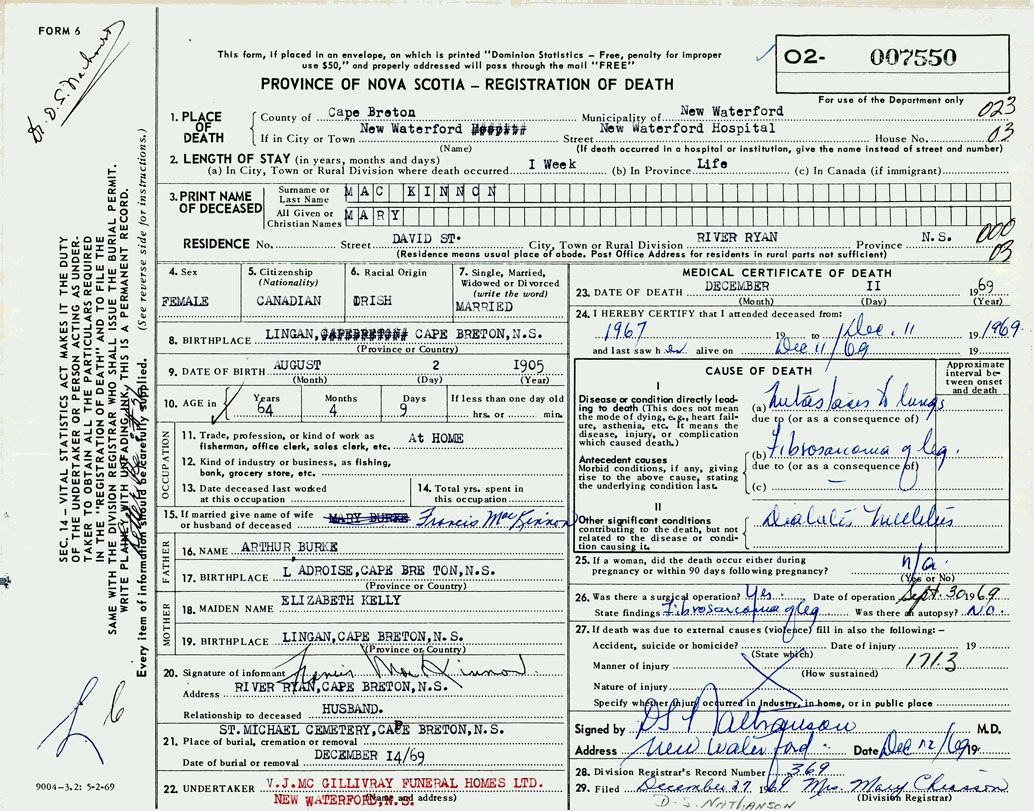 FORM 6
This form, if placed in an envelope, on which is printed "Dominion Statistics – Free, penalty for improper
use $50," and properly addressed will pass through the mail "FREE"
PROVINCE OF NOVA SCOTIA – REGISTRATION OF DEATH
O2- 007550
For use of the Department only
023
03
Dr. D.S. Nathanson
SEC. 14 – VITAL STATISTICS ACT MAKES IT THE DUTY
OF THE UNDERTAKER OR PERSON ACTING AS UNDER-
TAKER TO OBTAIN ALL THE PARTICULARS REQUIRED
IN THE "REGISTRATION OF DEATH" AND TO FILE THE
SAME WITH THE DIVISION REGISTRAR WHO SHALL ISSUE THE BURIAL PERMIT.
WRITE PLAINLY WITH UNFADING INK, THIS IS A PERMANENT RECORD.
Every item of information should be carefully supplied. (See reverse side for instructions.)
1. PLACE OF DEATH
County of Cape Breton Municipality of New Waterford
If in City or Town New Waterford Street New Waterford Hospital House No.
(Name) (If death occurred in a hospital or institution, give the name instead of street and number)
2. LENGTH OF STAY (in years, months and days)
(a) In City, Town or Rural Division where death occurred I Week (b) In Province Life (c) In Canada (if immigrant)
3. PRINT NAME OF DECEASED
Surname or Last Name MAC KINNON
All Given or Christian Names MARY
RESIDENCE No. Street DAVID ST. City, Town or Rural Division RIVER RYAN Province N.S.
(Residence means usual place of abode. Post Office Address for residents in rural parts not sufficient)
000
03
4. Sex FEMALE
5. Citizenship (Nationality) CANADIAN
6. Racial Origin IRISH
7. Single, Married, Widowed or Divorced (write the word) MARRIED
8. BIRTHPLACE LINGAN, CAPE BRETON,N.S.
(Province or Country)
9. DATE OF BIRTH AUGUST 2 1905
(Month) (Day) (Year)
10. AGE in Years 64 Months 4 Days 9 If less than one day old hrs. or min.
OCCUPATION
11. Trade, profession, or kind of work as fisherman, office clerk, sales clerk, etc. At HOME
12. Kind of industry or business, as fishing, bank, grocery store, etc.
13. Date deceased last worked at this occupation
14. Total yrs. spent in this occupation
15. If married give name of wife or husband of deceased MARY BURKE Francis MacKinnon
FATHER
16. NAME ARTHUR BURKE
17. BIRTHPLACE L ADROISE,CAPE BRE TON,N.S.
(Province or Country)
MOTHER
18. MAIDEN NAME ELIZABETH KELLY
19. BIRTHPLACE LINGAN,CAPE BRETON,N.S.
(Province or Country)
20. Signature of informant Francis MacKinnon
Address RIVER RYAN,CAPE BRETON,N.S.
Relationship to deceased HUSBAND.
ST. MICHAEL CEMETERY,CAPE BRETON,N.S.
21. Place of burial, cremation or removal
Date of burial or removal DECEMBER I4/69
22. UNDERTAKER V.J.MC GILLIVRAY FUNERAL HOMES LTD.
NEW WATERFORD,N.S.
(Name and address)
9004-3.2: 5-2-69
MEDICAL CERTIFICATE OF DEATH
23. DATE OF DEATH DECEMBER II 1969
(Month) (Day) (Year)
24. I HEREBY CERTIFY that I attended deceased from:
1967 19 to Dec. 11 1969.
and last saw her alive on Dec 11/69 19
CAUSE OF DEATH
Approximate interval between onset and death
I
Disease or condition directly leading to death (This does not mean the mode of dying, e.g., heart failure, asthenia, etc. It means the disease, injury, or complication which caused death.)
(a) Metastases to lungs
due to (or as a consequence of)
Antecedent causes
Morbid conditions, if any, giving rise to the above cause, stating the underlying condition last.
(b) Fibrosarcoma of leg.
due to (or as a consequence of)
(c) –
II
Other significant conditions
contributing to the death, but not related to the disease or condition causing it.
Diabetes Mellitus
25. If a woman, did the death occur either during pregnancy or within 90 days following pregnancy? n/a.
(Yes or No)
26. Was there a surgical operation? Yes. Date of operation Sept. 30 1969
State findings Fibrosarcoma of leg Was there an autopsy? No.
27. If death was due to external causes (violence) fill in also the following: –
Accident, suicide or homicide? Date of injury 19
(State which)
Manner of injury 1713
(How sustained)
Nature of injury
Specify whether injury occurred in industry, in home, or in public place
Signed by DS Nathanson M.D.
Address New Waterford. Date Dec 12/69 19
28. Division Registrar's Record Number 369
29. Filed December 27 1969 Mrs. Mary Chiasson
(Division Registrar)
D. S. NATHANSON